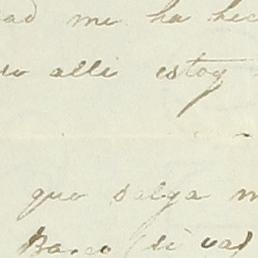 ad me ha hec
alli estoy
que salga m
Banco (si vas